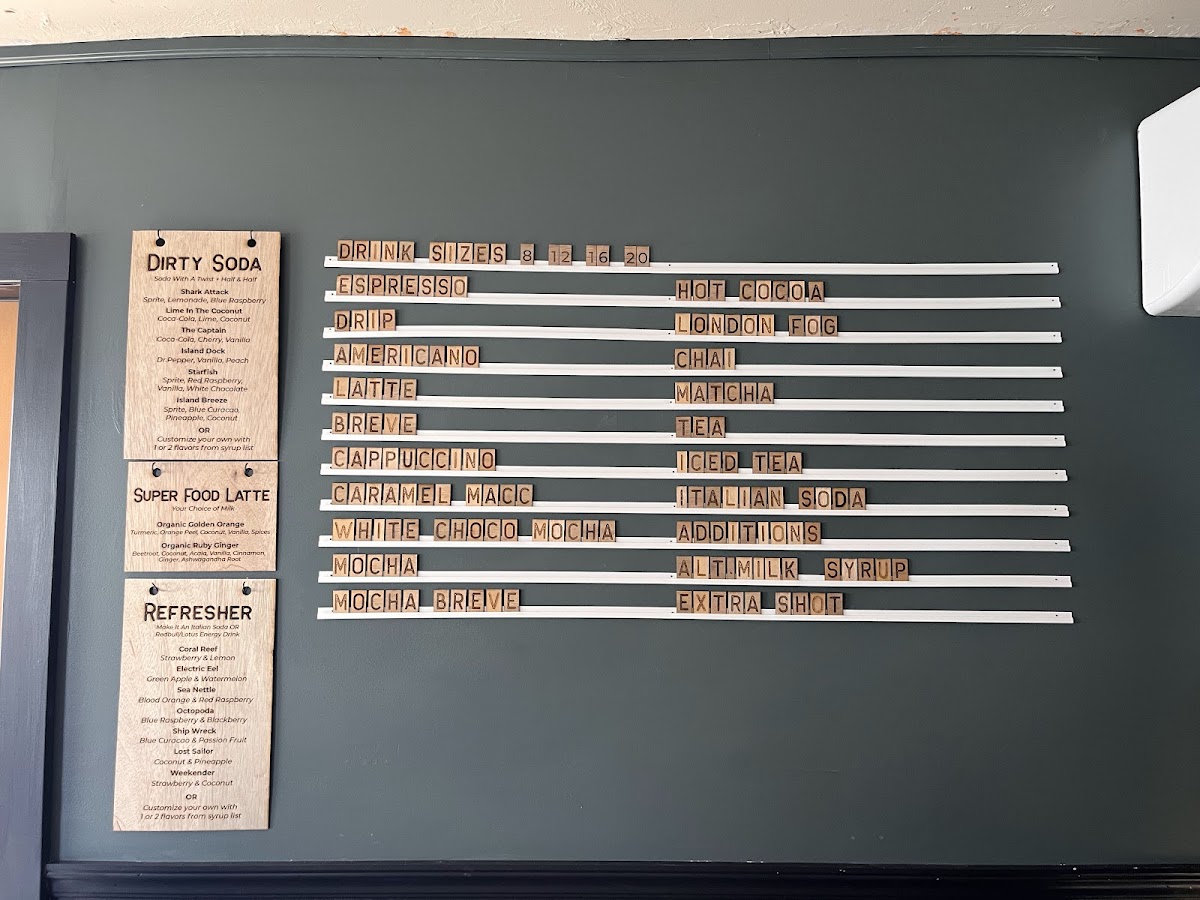 DIRTY SODA
Soda With A Twist + Half & Half
Shark Attack
Sprite, Lemonade, Blue Raspberry
Lime In The Coconut
Coca-Cola, Lime, Coconut
The Captain
Coca-Cola, Cherry, Vanilla
Island Dock
Dr Pepper, Vanilla, Peach
Starfish
Sprite, Red Raspberry,
Vanilla, White Chocolate
Island Breeze
Sprite, Blue Curacao,
Pineapple, Coconut
OR
Customize your own with
1 or 2 flavors from syrup list
SUPER FOOD LATTE
Your Choice of Milk
Organic Golden Orange
Turmeric, Orange Peel, Coconut, Vanilla, Spices
Organic Ruby Ginger
Beetroot, Coconut, Acaia, Vanilla, Cinnamon,
Ginger, Ashwagandha Root
REFRESHER
Make It An Italian Soda OR
Redbull/Lotus Energy Drink
Coral Reef
Strawberry & Lemon
Electric Eel
Green Apple & Watermelon
Sea Nettle
Blood Orange & Red Raspberry
Octopoda
Blue Raspberry & Blackberry
Ship Wreck
Blue Curacao & Passion Fruit
Lost Sailor
Coconut & Pineapple
Weekender
Strawberry & Coconut
OR
Customize your own with
1 or 2 flavors from syrup list
DRINK SIZES 8 12 16 20
ESPRESSO
DRIP
AMERICANO
LATTE
BREVE
CAPPUCCINO
CARAMEL MACC
WHITE CHOCO MOCHA
MOCHA
MOCHA BREVE
HOT COCOA
LONDON FOG
CHAI
MATCHA
TEA
ICED TEA
ITALIAN SODA
ADDITIONS
ALT.MILK SYRUP
EXTRA SHOT